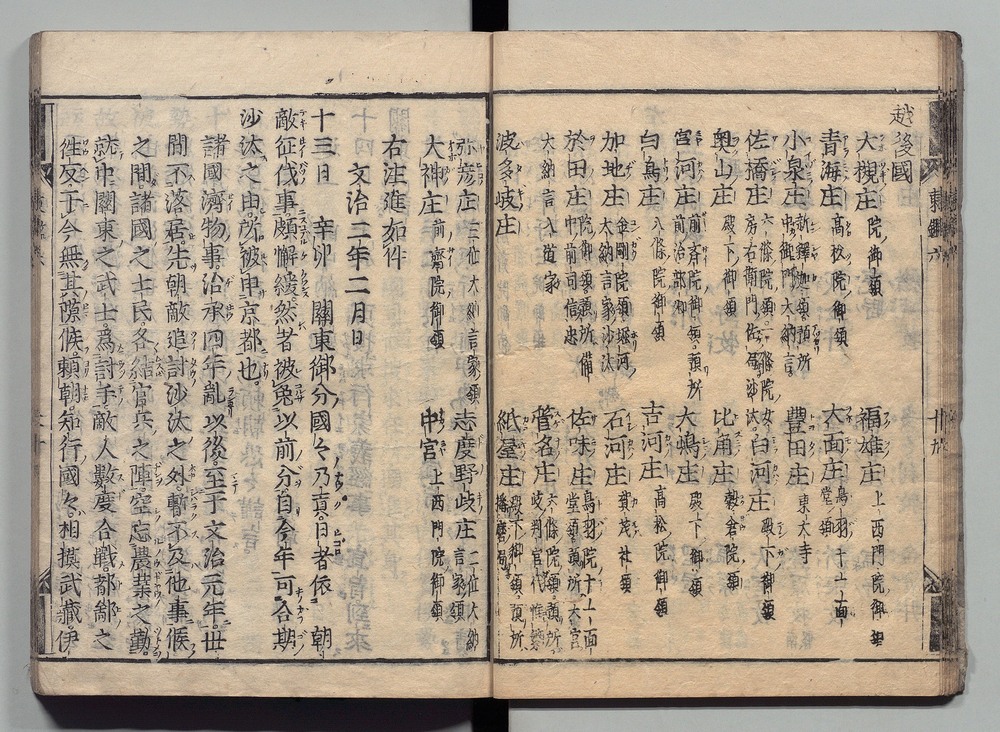 越後國
大槻庄 院御領 福雄庄 上西門院御領
青海庄 高松院御領 大面庄 鳥羽十一面堂領
小泉庄 新釋迦堂領預所中御門大納言 豐田庄 東大寺
佐橋庄 六條院領一條院女房右衛門佐局沙汰 白河庄 殿下御領
奥山庄 殿下御領 比角庄 穀倉院領
宮河庄 前齋院御領預所前治部卿 大嶋庄 殿下御領
白鳥庄 八條院御領 吉河庄 高松院御領
加地庄 金剛院領堀河大納言家沙汰 石河庄 賀茂社領
於田庄 院御領預所備中前司信忠 佐味庄 鳥羽院十一面堂領預所大宮
大納言入道家 菅名庄 六條院領預所
波多岐庄 紙屋庄 殿下御領預所播磨局
弥彦庄 二位大納言家領 志度野岐庄 二位大納言家領
大神庄 前齋院御領 中宮 上西門院御領
右注進如件
文治二年二月日
十三日 辛卯 關東御分國々乃貢日者依朝
敵征伐事頗懈緩然者被免以前分自今年可合期
沙汰之由所被申京都也
諸國濟物事治承四年亂以後至于文治元年世
間不落居先朝敵追討沙汰之外暫不及他事候
之間諸國之士民各結官兵之陣空忘農業之勤
就中關東之武士爲討手敵人數度合戰都鄙之
往反于今無其隙候賴朝知行國々相摸武藏伊